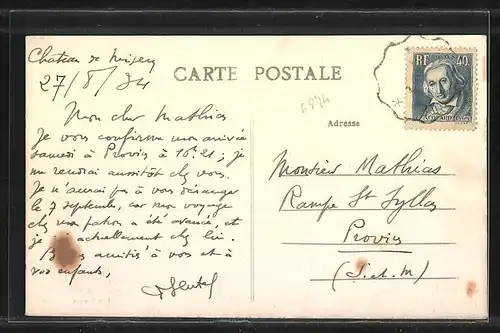 Chateau de
27/8/34
CARTE POSTALE
6874
Adresse
RF 40c
JACQUARD
Mon cher Mathias
Je vous confirme mon arrivée
samedi à Provins à 16h21 ; je
me rendrai aussitôt chez vous.
Je n'aurai pas à vous déranger
le 7 septembre, car mon voyage
chez mon patron a été avancé, et
je actuellement chez lui.
amitiés à vous et à
vos enfants,
Monsieur Mathias
Rampe St Syllas
Provins
(S. et M)